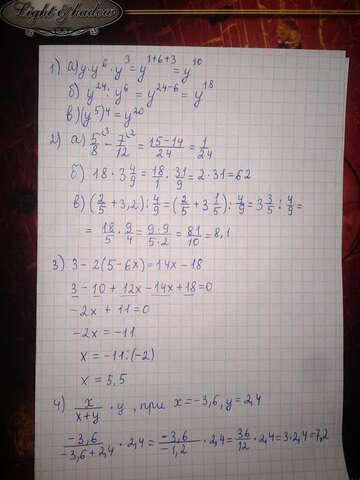 Light & shadow
1) а) y·y⁶·y³=y¹⁺⁶⁺³=y¹⁰
б) y²⁴:y⁶=y²⁴⁻⁶=y¹⁸
в) (y⁵)⁴=y²⁰
2) а) 5/8\³ - 7/12\² = 15-14/24 = 1/24
б) 18·3 4/9 = 18/1 · 31/9 = 2·31=62
в) (2/5+3,2):4/9=(2/5+3 1/5):4/9=3 3/5:4/9=
= 18/5 · 9/4 = 9·9/5·2 = 81/10 = 8,1
3) 3-2(5-6x)=14x-18
3-10+12x-14x+18=0
-2x+11=0
-2x=-11
x=-11:(-2)
x=5,5
4) x/x+y · y, при x=-3,6, y=2,4
-3,6/-3,6+2,4 · 2,4 = -3,6/-1,2 · 2,4 = 36/12 · 2,4=3·2,4=7,2